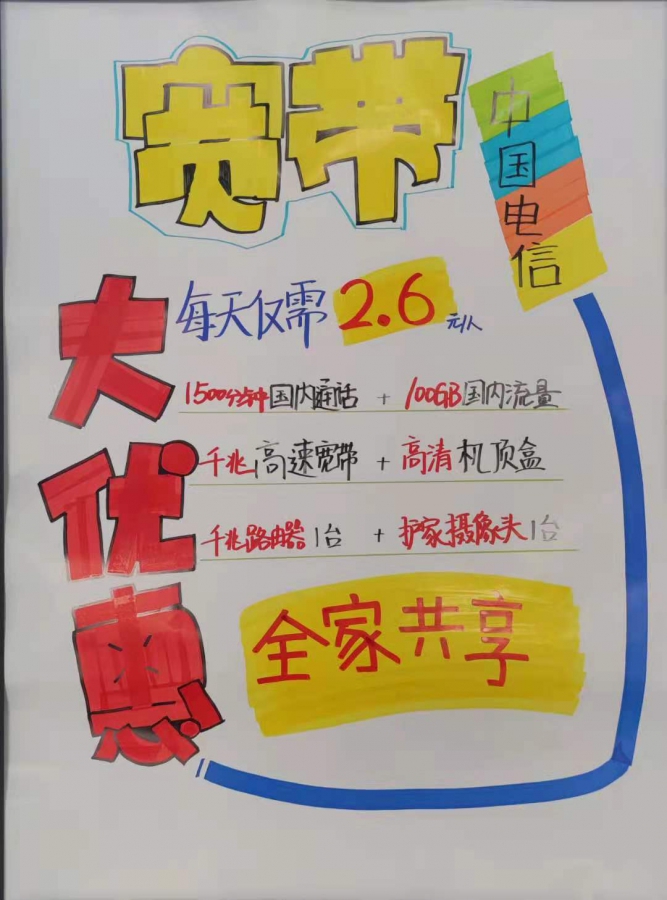 宽带
中国电信
大优惠
每天仅需2.6元/人
1500分钟国内通话 + 100GB国内流量
千兆高速宽带 + 高清机顶盒
千兆路由器1台 + 护家摄像头1台
全家共享